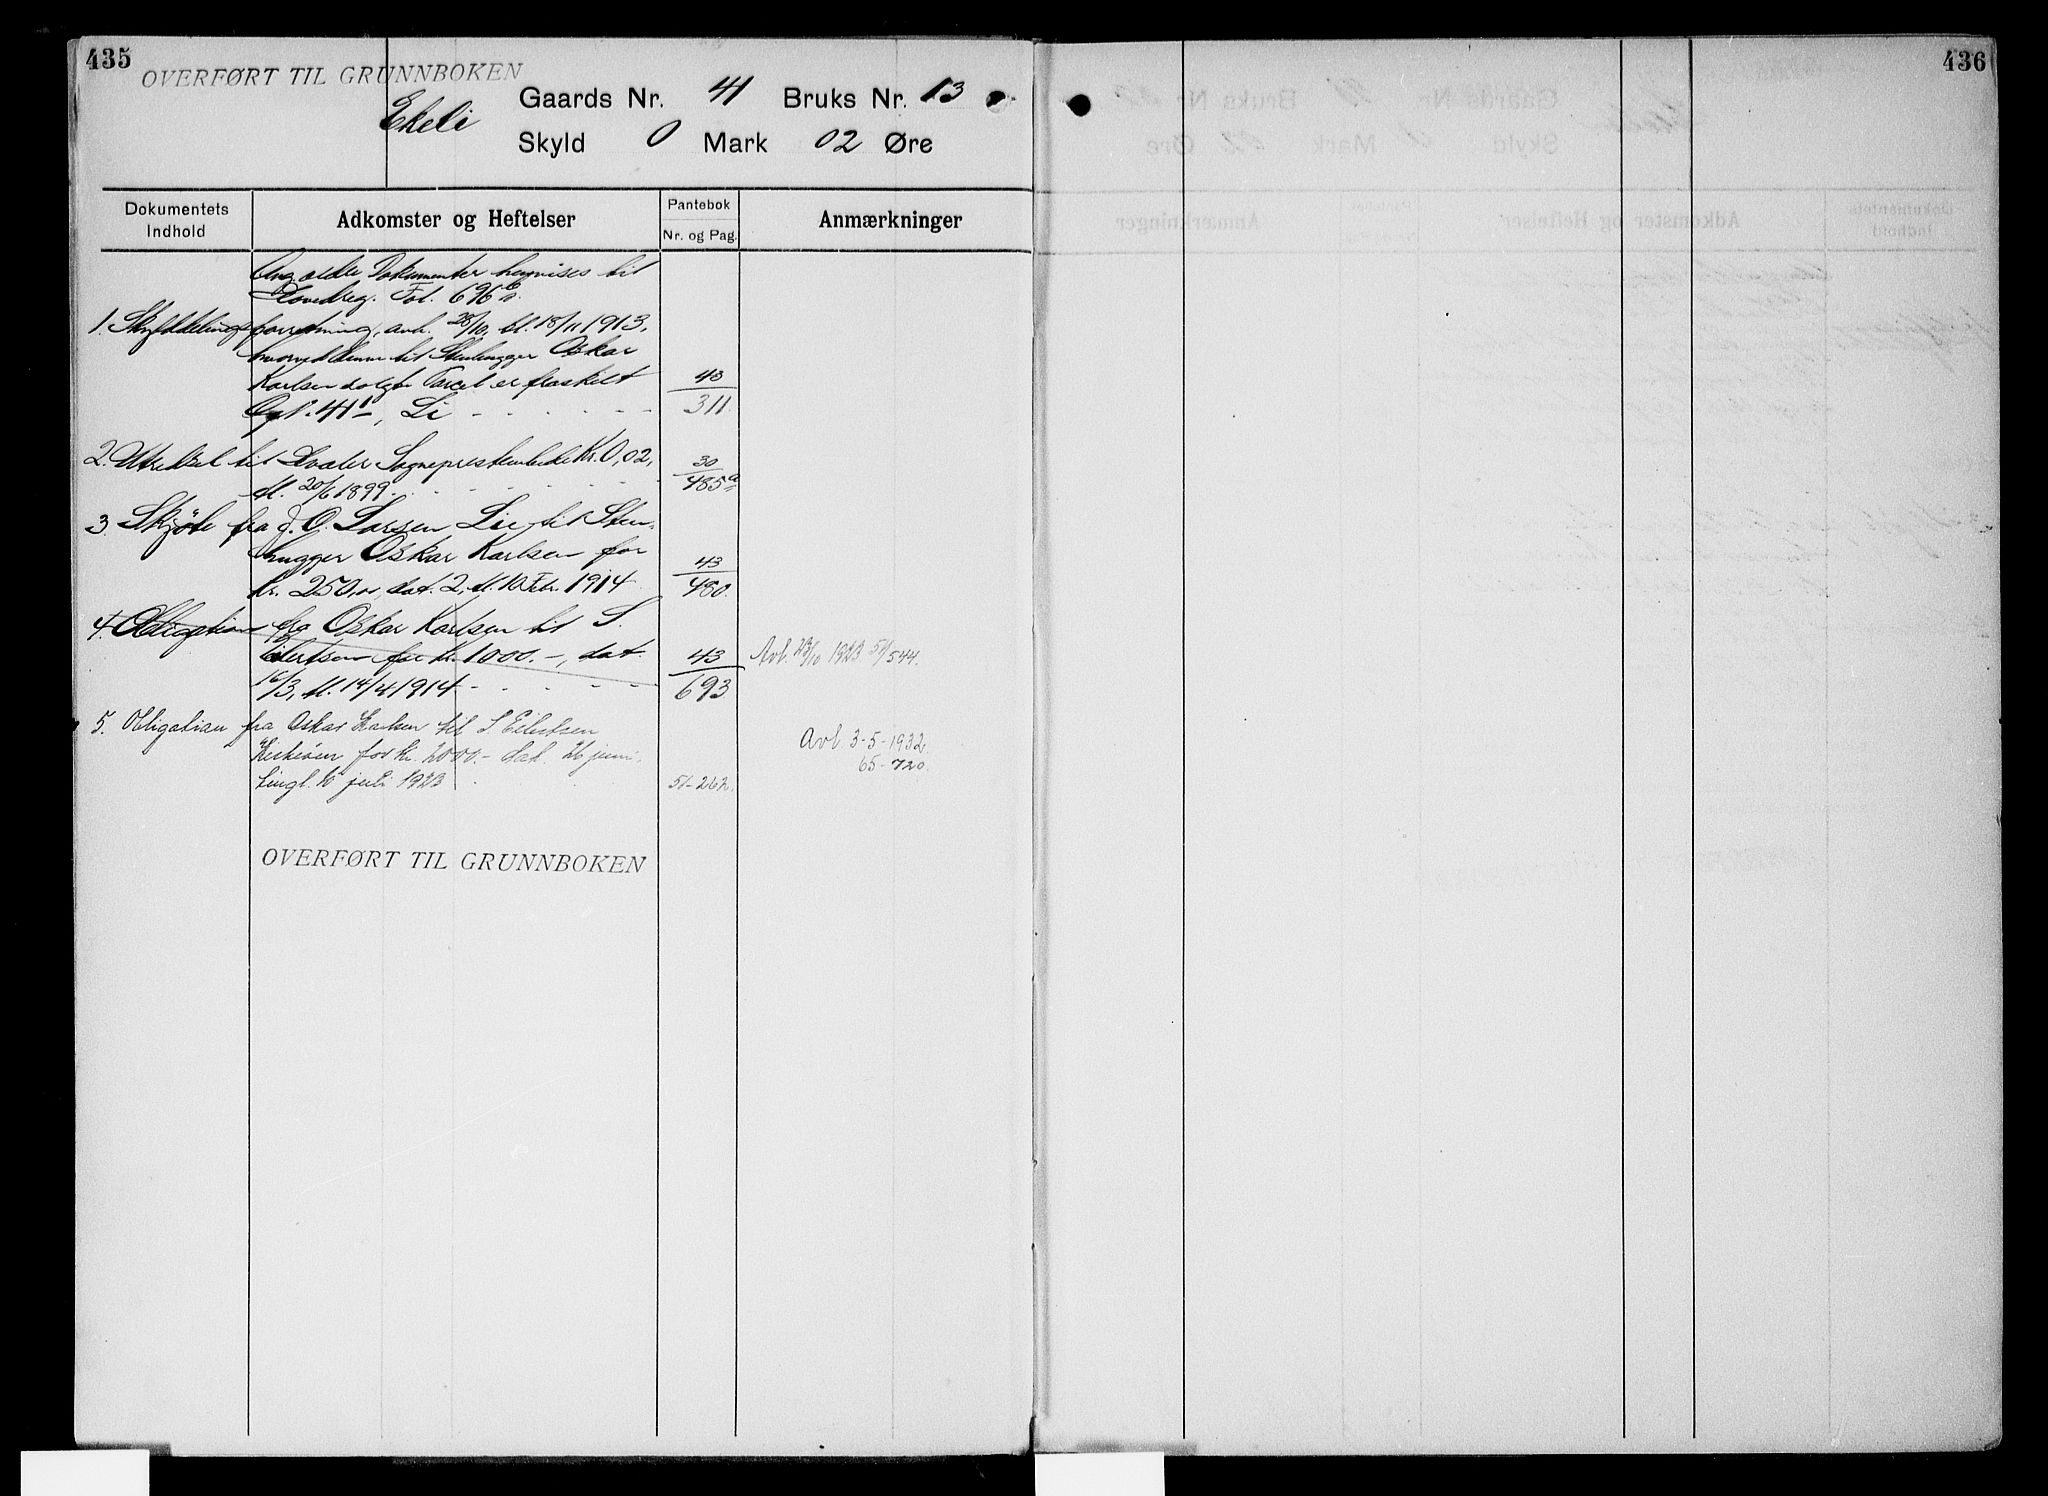 435
OVERFØRT TIL GRUNNBOKEN
Ekeli
Gaards Nr. 41 Bruks Nr. 13
Skyld 0 Mark 02 Øre
Dokumentets Indhold
Adkomster og Heftelser
Pantebok Nr. og Pag.
Anmærkninger
Ang. ældre Dokumenter henvises til
Hovedreg. Fol. 696
1. Skylddelingsforretning, avh. 28/10, tl. 18/11 1913,
hvorved denne til Stenhugger Oskar
Karlsen solgte Parcel er fraskilt
Gpl. 41/1, Li - - - - - 43/311.
2. Utredsel til Hvaler Sogneprestembede Kr. 0,02,
tl. 20/6 1899. - - - - 30/485
3. Skjøte fra J. O. Larsen Lie til Sten-
hugger Oskar Karlsen for
kr. 250,00, dat. 2, tl. 10 Febr. 1914. 43/480.
4. Obligation fra Oskar Karlsen til S.
Eilertsen for kr. 1000.-, dat.
16/3, tl. 14/4 1914 - - - - 43/693
Avl. 23/10 1923 51/544.
5. Obligation fra Oskar Karlsen til S Eilertsen
Kirkeøen for kr. 2000.- dat. 26 juni,
tingl. 10 juli 1923 51-262.
Avl. 3-5-1932.
65-720.
OVERFØRT TIL GRUNNBOKEN
436